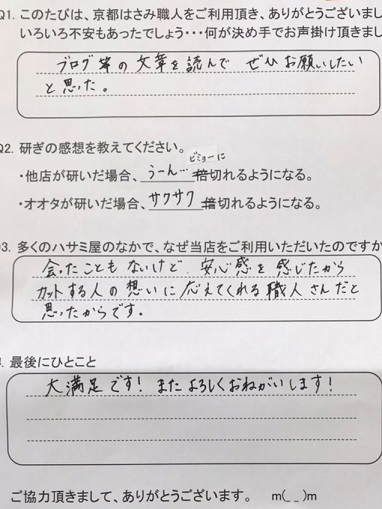 Q1. このたびは、京都はさみ職人をご利用頂き、ありがとうございまし
いろいろ不安もあったでしょう・・・何が決め手でお声掛け頂きまし
ブログ等の文章を読んで ぜひお願いしたい
と思った。
Q2. 研ぎの感想を教えてください。
ビミョーに
・他店が研いだ場合、うーん… 倍切れるようになる。
・オオタが研いだ場合、サクサク 倍切れるようになる。
3. 多くのハサミ屋のなかで、なぜ当店をご利用いただいたのですか
会ったこともないけど、安心感を感じたから
カットする人の想いに応えてくれる職人さんだと
思ったからです。
. 最後にひとこと
大満足です! またよろしくおねがいします!
ご協力頂きまして、ありがとうございます。 m(_ _)m